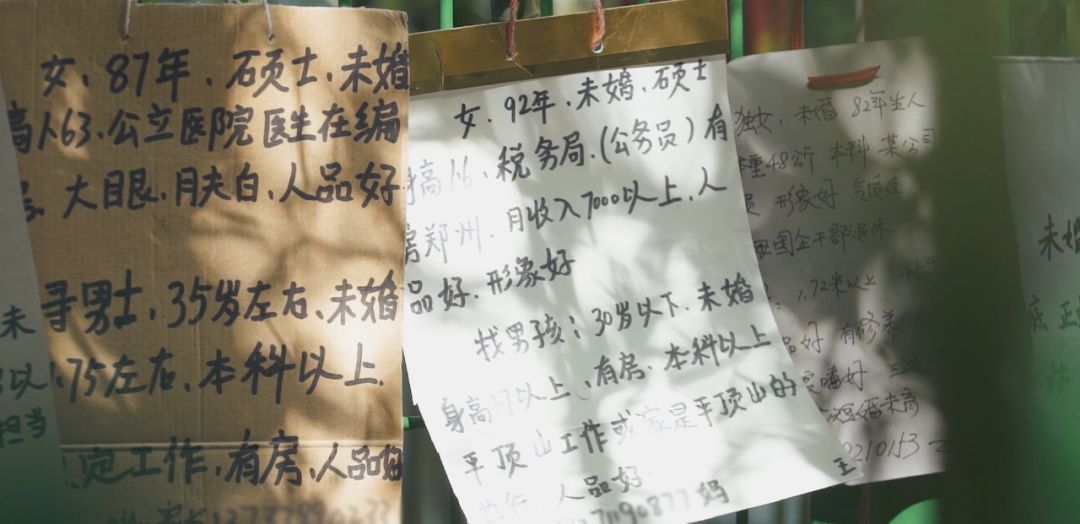 女、87年、硕士、未婚
高1.63、公立医院医生在编
大眼、肤白、人品好
寻男士，35岁左右、未婚
1.75左右、本科以上.
定工作，有房、人品好
女、92年、未婚、硕士
身高1.6、税务局、(公务员)有
房郑州、月收入7000以上、人
品好、形象好
找男孩：30岁以下、未婚
身高1.7以上、有房、本科以上
平顶山工作或家是平顶山的
人品好
妈
王
独女，未婚 82年生人
体重48公斤 本科 某公司
形象好
母国企干部退休
1.72米以上
品好 有修养
嗜好
短婚未育
0210153
未
以
担当
未婚
底 正
称